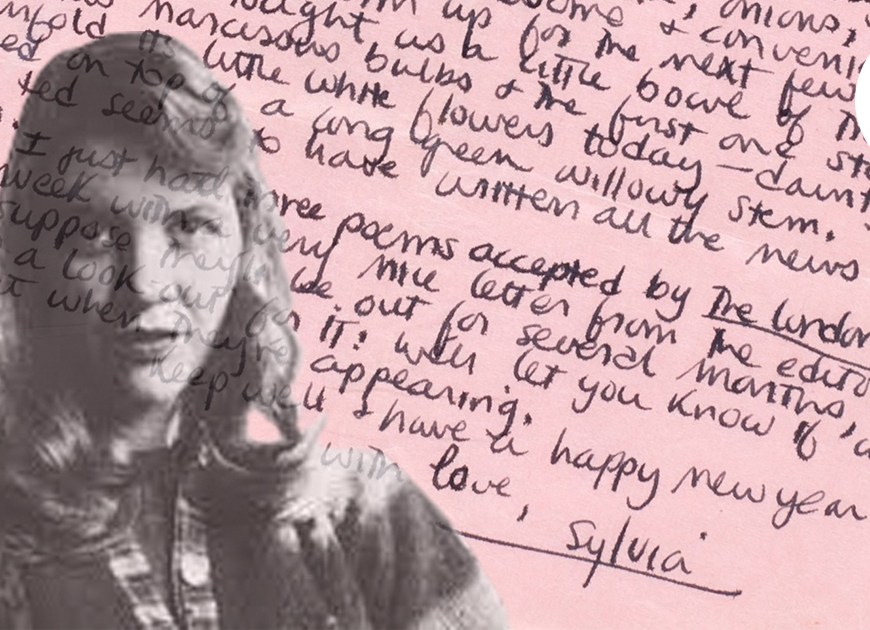 , onions,
& convenien
up for the next few
brought us a little bowl of
narcissus bulbs & the first one
unfold its little white flowers today — daint
ed on top of a long green willowy stem.
ted seems to have written all the news
I just had three poems accepted by The London
week with a very nice letter from the edito
suppose they'll be out for several months,
a look-out for it: will let you know
at when they're appearing.
Keep well & have a happy new year
with love,
Sylvia